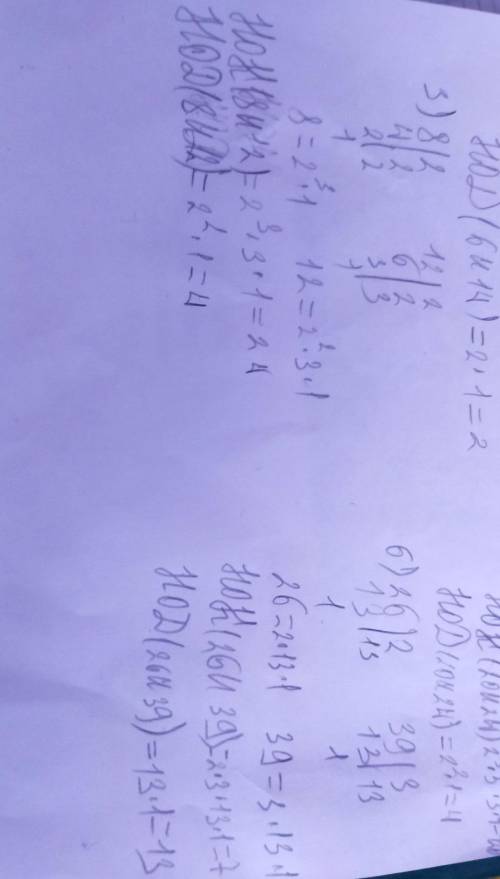 НОД(6и14)=2·1=2
3) 8|2 12|2
4|2 6|2
2|2 3|3
1 1
8=2³·1 12=2²·3·1
НОК(8и12)=2³·3·1=24
НОД(8и12)=2²·1=4
НОД(20и24)=2²·1=4
6) 26|2 39|3
13|13 13|13
1 1
26=2·13·1 39=3·13·1
НОК(26и39)=2·3·13·1=7
НОД(26и39)=13·1=13